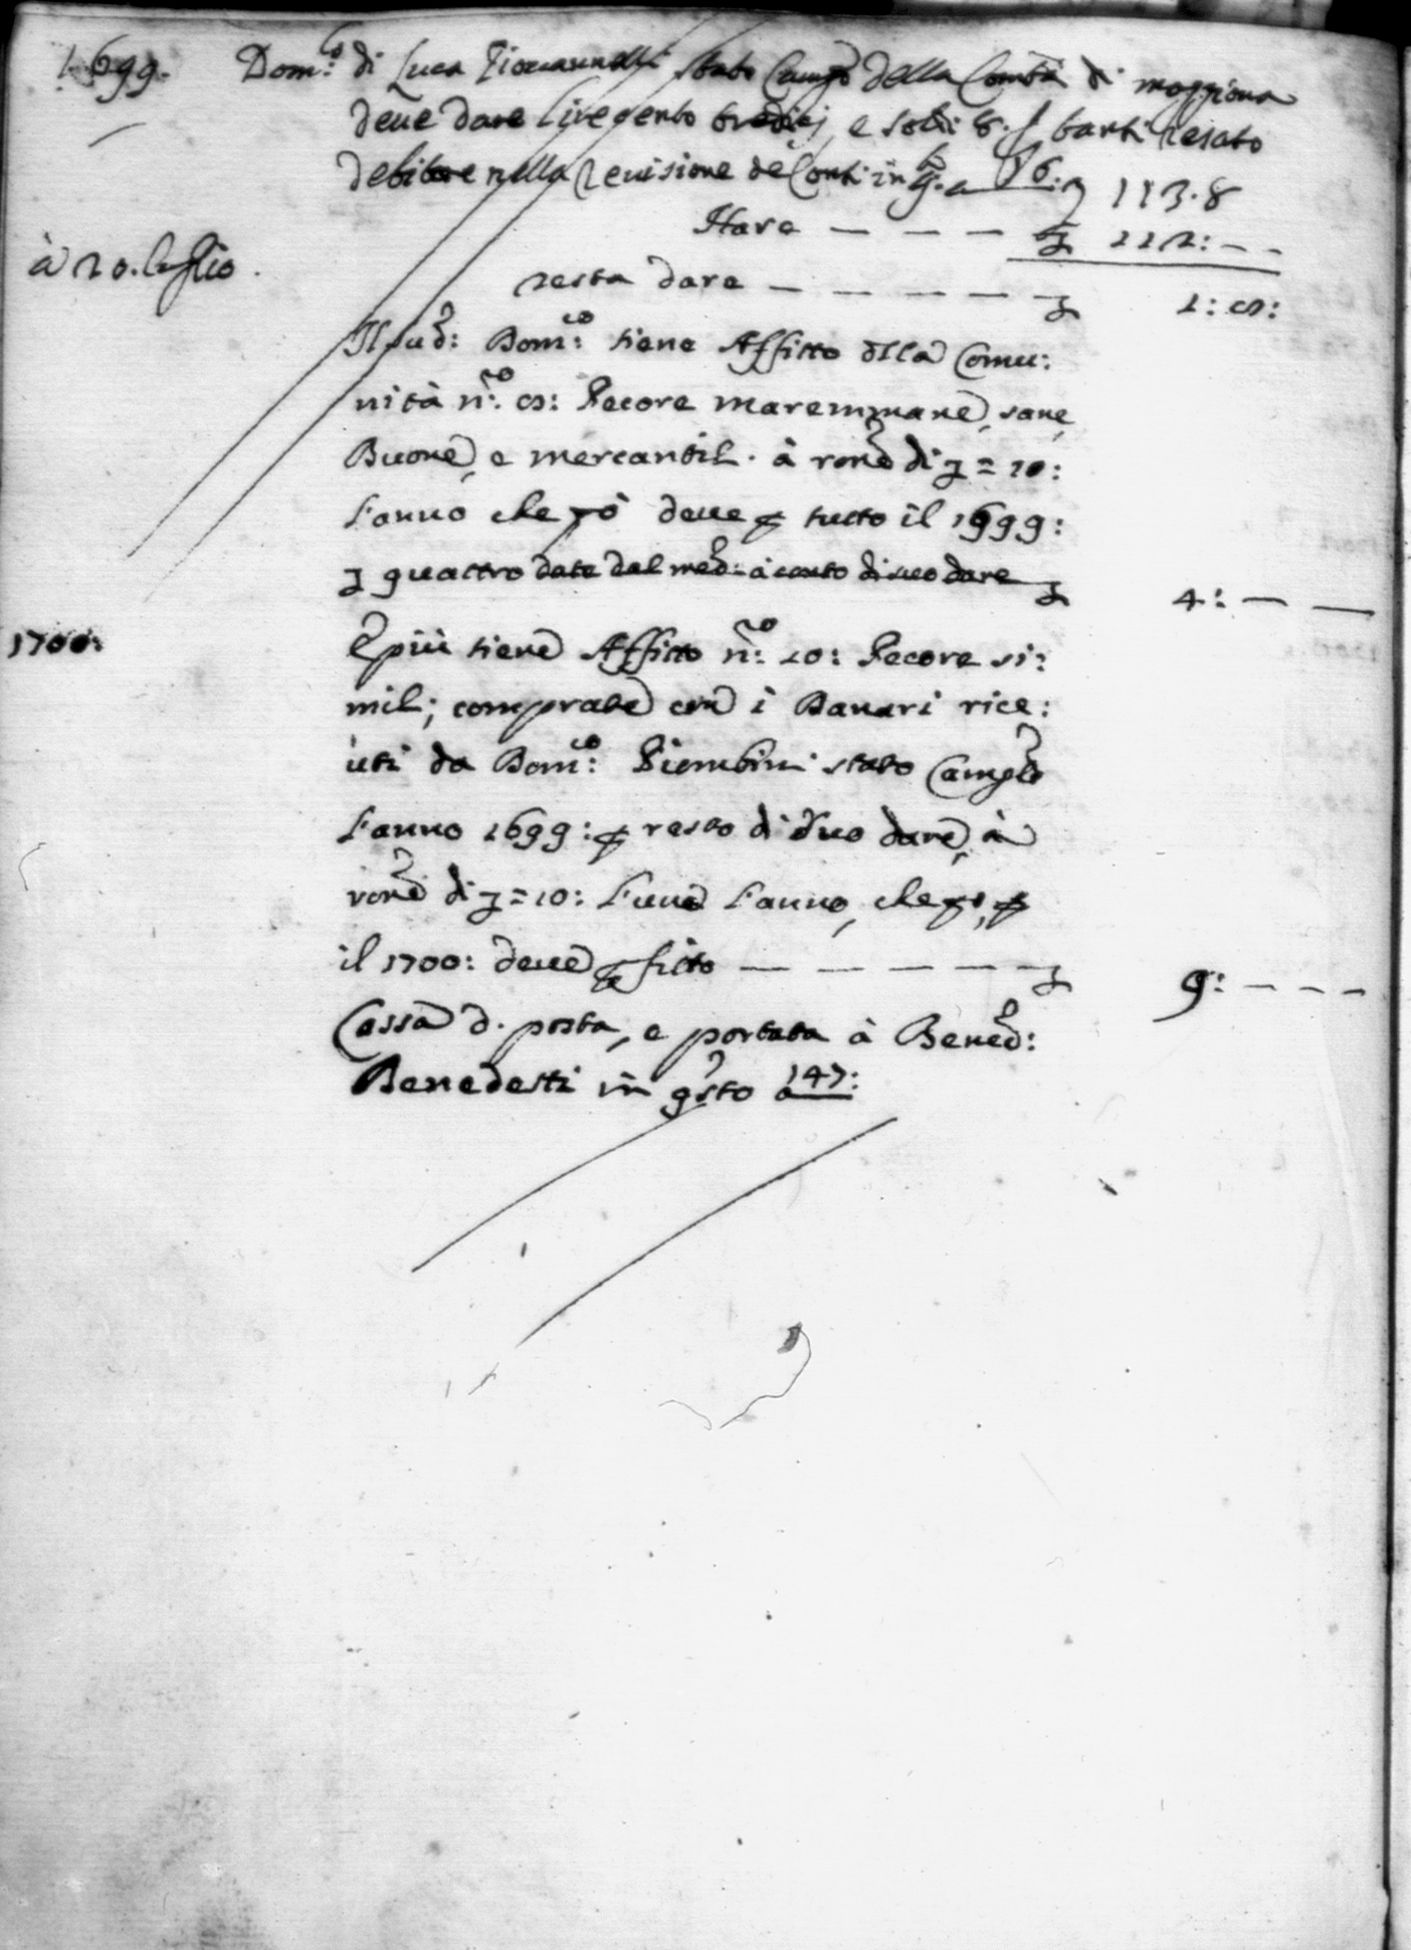 1699. Dom.co di Luca Giouannelli stato Camgo della Comtà di moggiona
deue dare lire cento tredici, e soldi 8. p tanti resato
debitore nella reuisione de Conti in q.to a 86. 113.8
Hare — — — — 112: — —
à 20. luglio.
resta dare — — — — — 1: 8:
Il sud: Dom.co tiene Affitto dlla Comu:
nità n.ro 8: Pecore maremmane, sane,
Buone, e mercantil. à rone di = 10:
l'anno che p ò deue p tutto il 1699:
quattro date dal med: à conto di suo dare 4: — —
1700:
E più tiene Affitto n.ro 10: Pecore si:
mil; comprate con i Danari rice:
uti da Dom.co Piombini stato Camglo
l'anno 1699: p resto di suo dare, à
rone di = 10: l'una l'anno, che p ò, p
il 1700: deue p fitto — — — — — 9: — — —
Cassa d. posta, e portata à Bened:
Benedetti in qsto à 147: